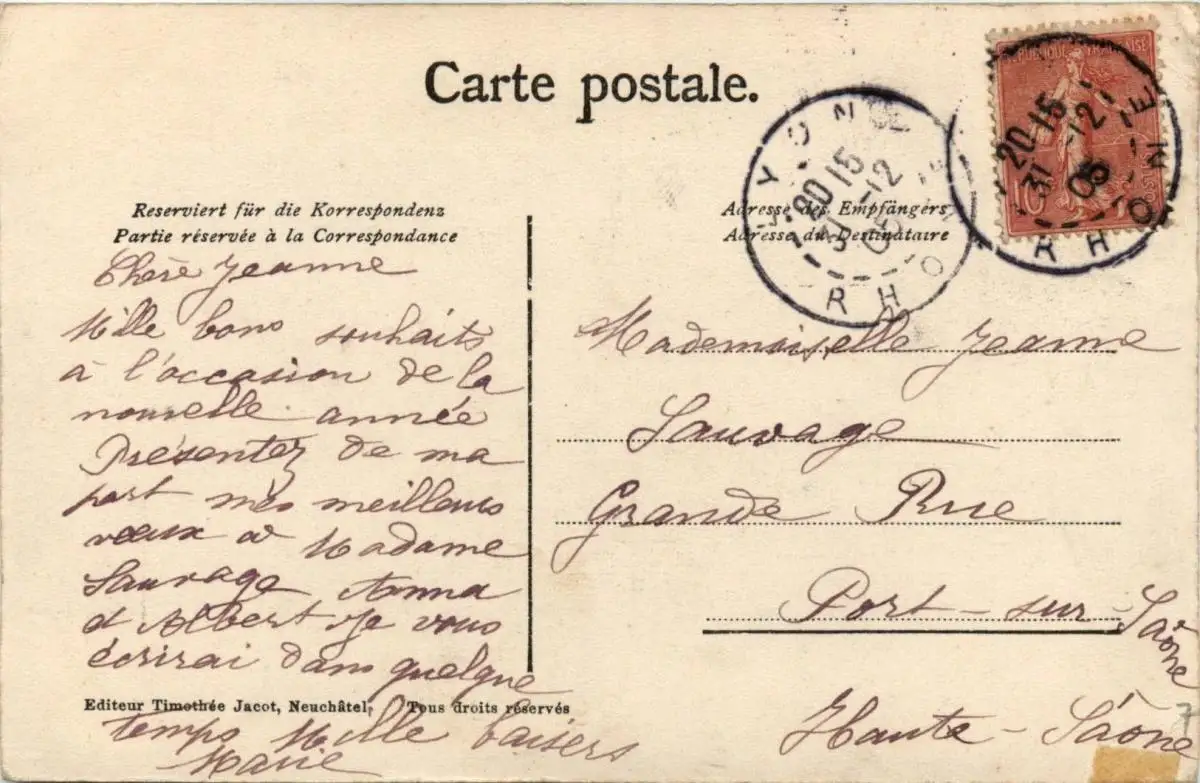 Carte postale.
REPUBLIQUE FRANÇAISE
10
20-15
31-12
05
RHONE
LYON
20-15
31-12
05
RHONE
Reserviert für die Korrespondenz
Partie réservée à la Correspondance
Adresse des Empfängers
Adresse du Destinataire
Chère Jeanne
Mille bons souhaits
à l'occasion de la
nouvelle année
Présentez de ma
part mes meilleurs
vœux à Madame
Sauvage Anna
et Albert je vous
écrirai dans quelque
temps Mille baisers
Marie
Editeur Timothée Jacot, Neuchâtel. Tous droits réservés
Mademoiselle Jeanne
Sauvage
Grande Rue
Port-sur-Saône
Haute-Saône
7